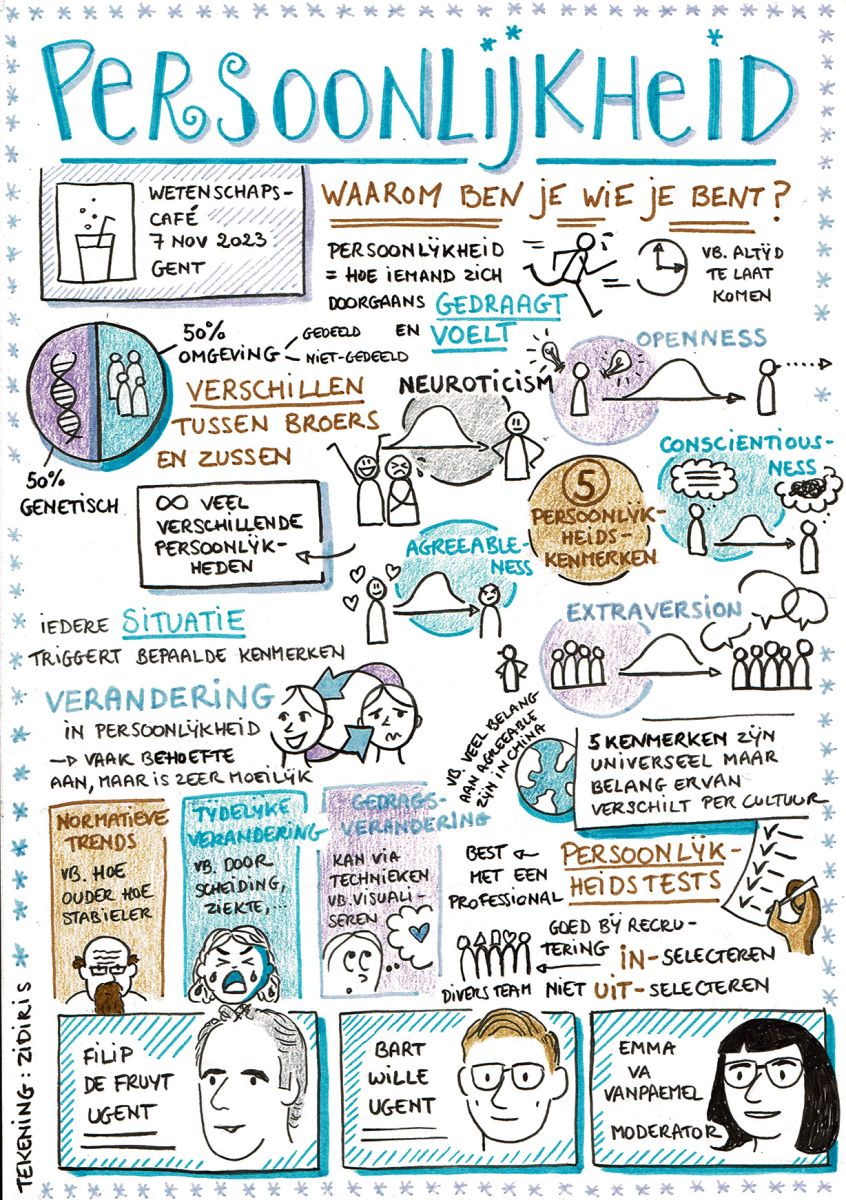 PERSOONLIJKHEID
WETENSCHAPS-
CAFÉ
7 NOV 2023
GENT
WAAROM BEN JE WIE JE BENT?
PERSOONLIJKHEID
= HOE IEMAND ZICH
DOORGAANS GEDRAAGT
EN VOELT
VB. ALTIJD
TE LAAT
KOMEN
50%
OMGEVING
GEDEELD
NIET-GEDEELD
50%
GENETISCH
VERSCHILLEN
TUSSEN BROERS
EN ZUSSEN
∞ VEEL
VERSCHILLENDE
PERSOONLIJK-
HEDEN
NEUROTICISM
OPENNESS
CONSCIENTIOUS-
NESS
5
PERSOONLIJK-
HEIDS-
KENMERKEN
AGREEABLE-
NESS
EXTRAVERSION
IEDERE SITUATIE
TRIGGERT BEPAALDE KENMERKEN
VERANDERING
IN PERSOONLIJKHEID
→ VAAK BEHOEFTE
AAN, MAAR IS ZEER MOEILIJK
VB. VEEL BELANG
AAN AGREEABLE
ZIJN IN CHINA
5 KENMERKEN ZIJN
UNIVERSEEL MAAR
BELANG ERVAN
VERSCHILT PER CULTUUR
NORMATIEVE
TRENDS
VB. HOE
OUDER HOE
STABIELER
TIJDELIJKE
VERANDERING
VB. DOOR
SCHEIDING,
ZIEKTE,...
GEDRAGS-
VERANDERING
KAN VIA
TECHNIEKEN
VB. VISUALI-
SEREN
PERSOONLIJK-
HEIDSTESTS
BEST
MET EEN
PROFESSIONAL
GOED BIJ RECRU-
TERING
IN-SELECTEREN
NIET UIT-SELECTEREN
DIVERS TEAM
FILIP
DE FRUYT
UGENT
BART
WILLE
UGENT
EMMA
VA
VANPAEMEL
MODERATOR
TEKENING: ZIDIRIS